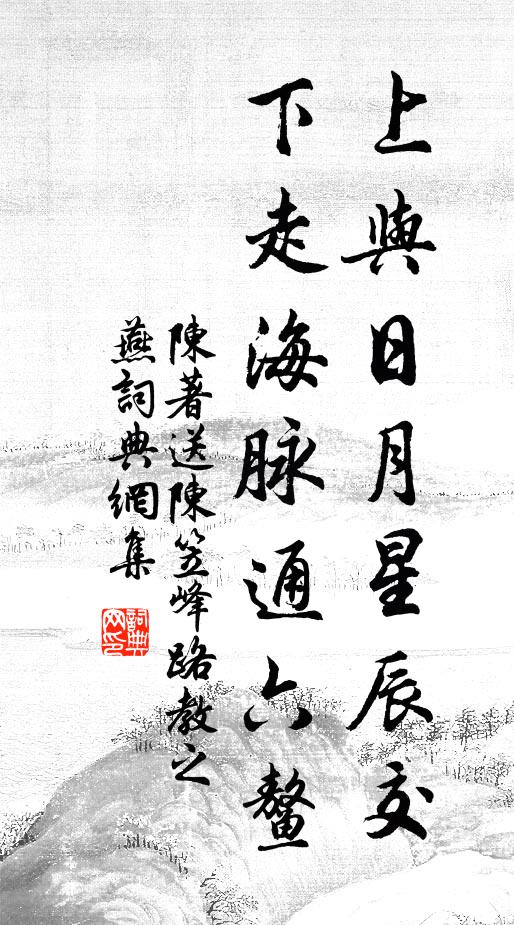 上與日月星辰交
下走海脉通六鰲
陳著送陳笠峰路教之
燕詞典網集
詞典网印